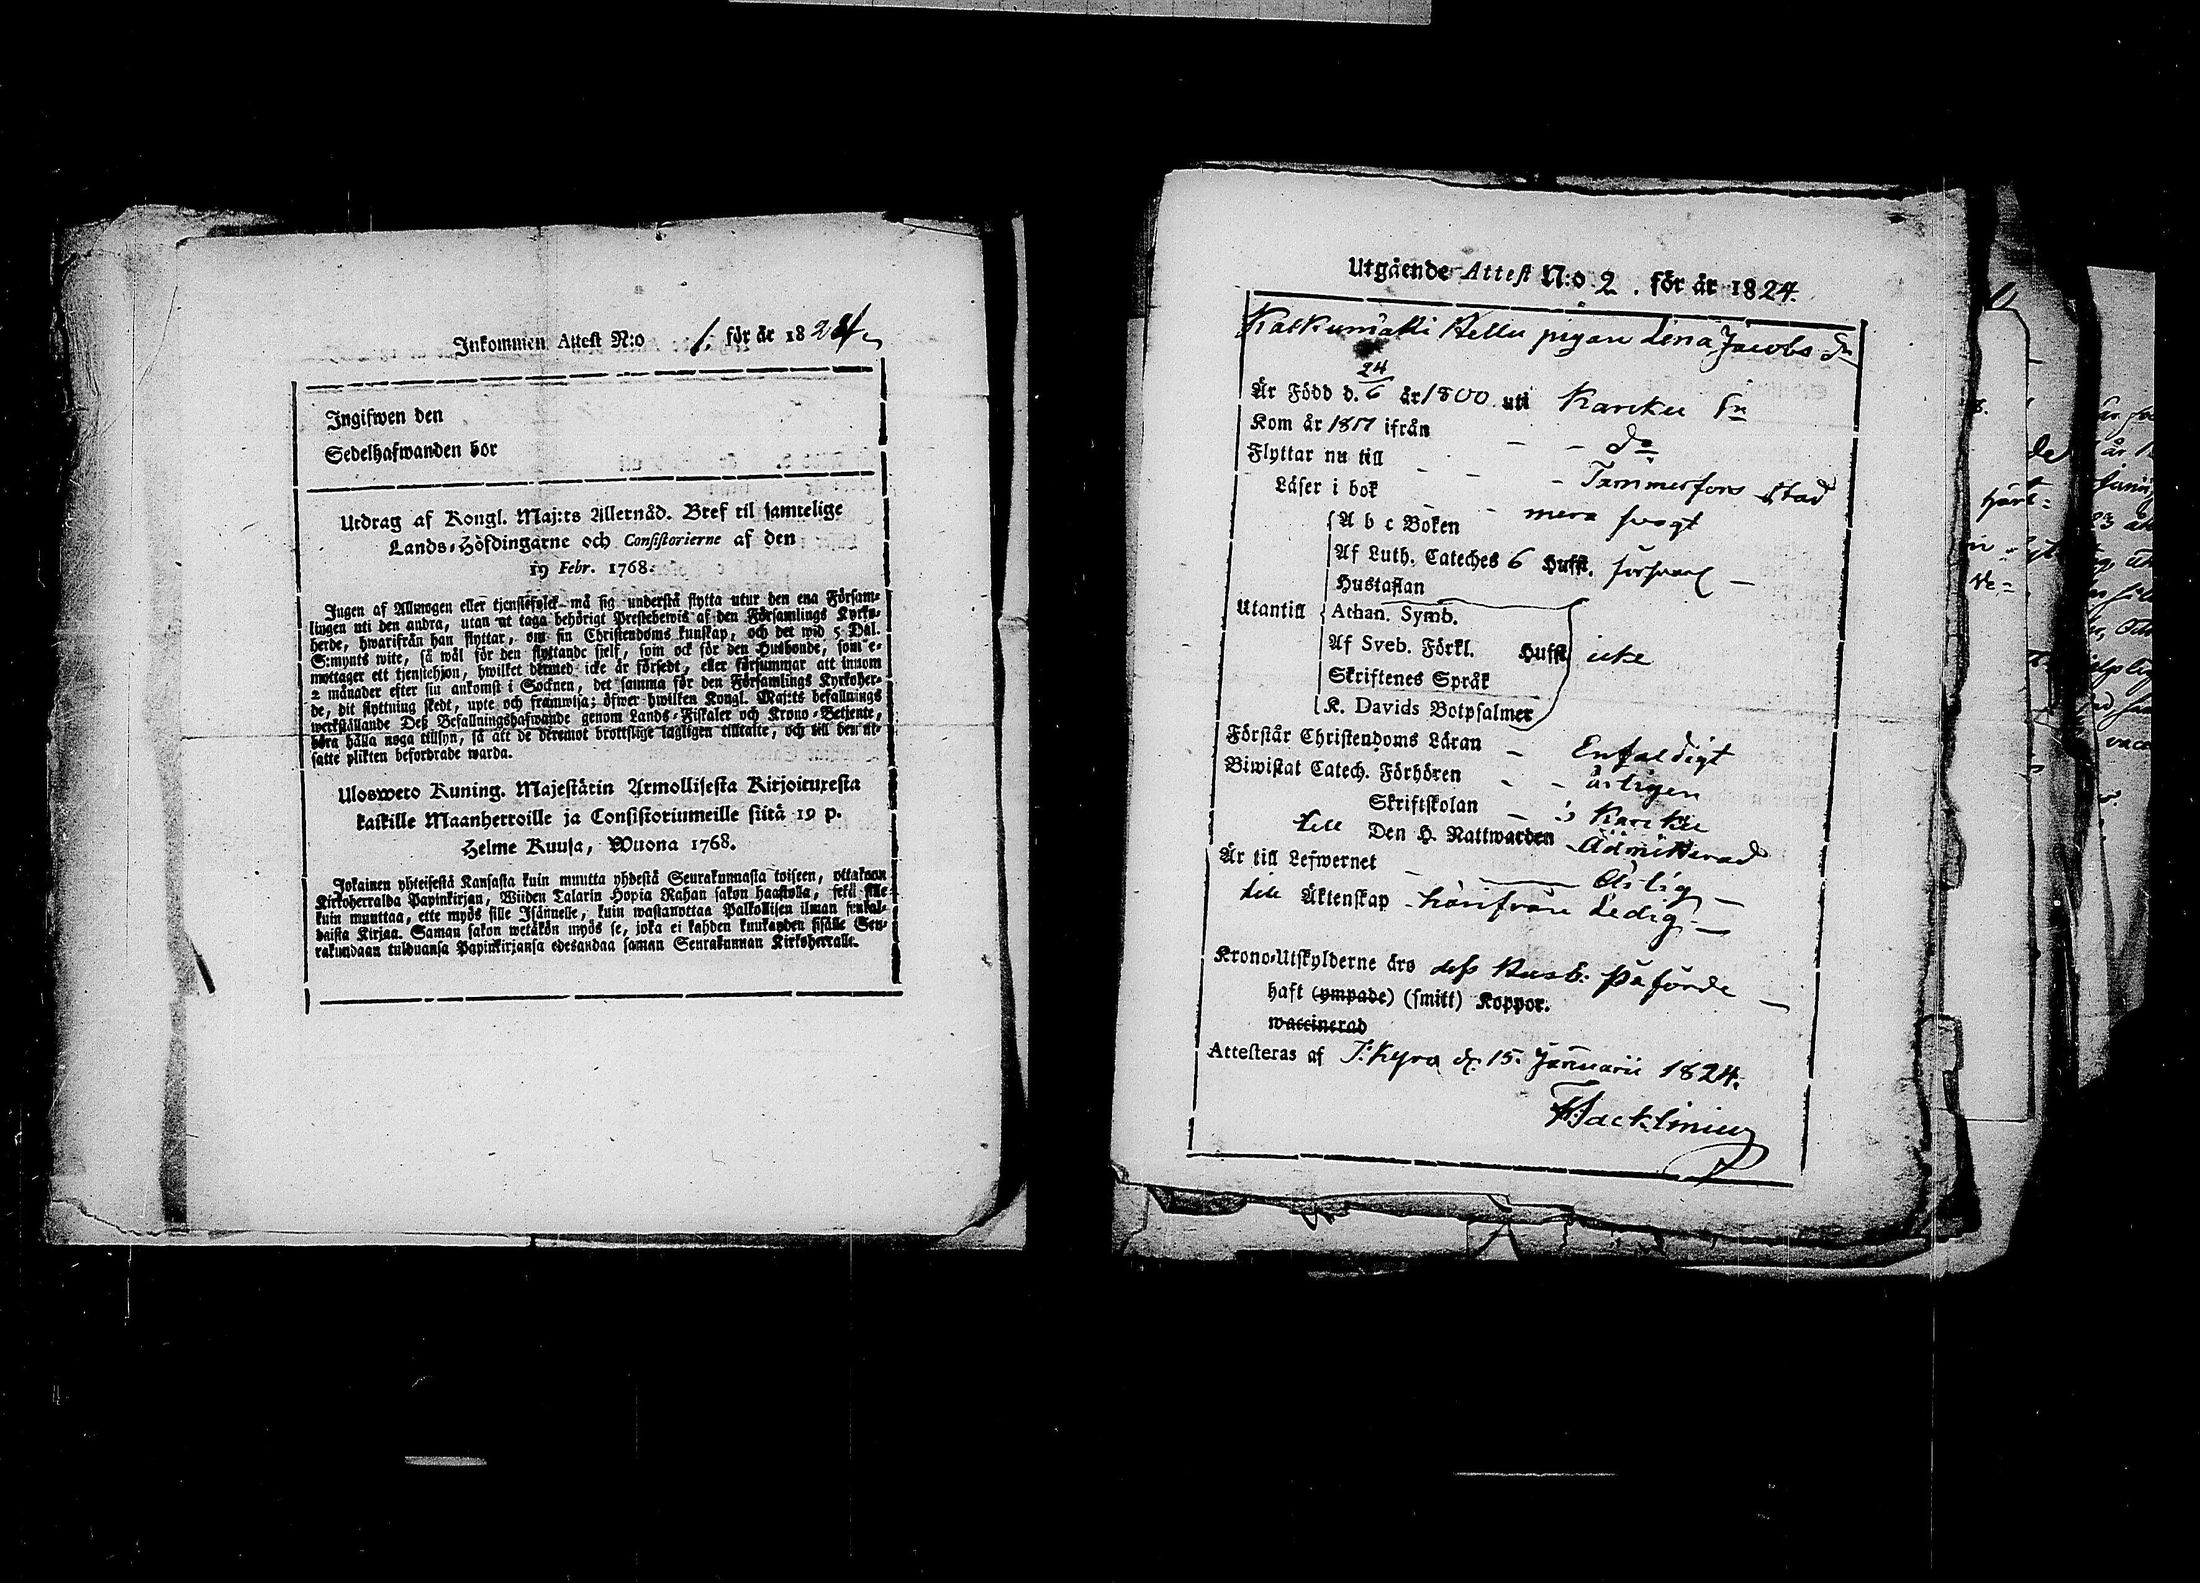 Inkommen Attest N:o 1. för år 1824
Ingifwen den
Sedelhafwanden bor
Utdrag af Kongl. Maj:ts Allernåd. Bref til samtelige
Lands-Höfdingarne och Consistorierne af den
19 Febr. 1768.
Ingen af Allmogen eller tjenstefolck må sig understå flytta utur den ena Försam-
lingen uti den andra, utan at taga behörigt Prestebewis af den Församlings Kyrko-
herde, hwarifrån han flyttar, om sin Christendoms kunskap, och det wid 5 Dal.
S:mynts wite, så wäl för den flyttande sjelf, som ock för den Husbonde, som e-
mottager ett tjenstehjon, hwilket dermed icke är försedt, eller försummar att innom
2 månader efter sin ankomst i Socknen, det samma för den Församlings Kyrkoher-
de, dit flyttning skedt, upte och framwisa; öfwer hwilken Kongl. Maj:ts befallnings
werkställande Deß Befallningshafwande genom Lands-Fiskaler och Krono-Betjente,
böra hålla noga tillsyn, så att de deremot brottslige lagligen tilltalte, och till den ut-
satte plikten befordrade warda.
Ulosweto Kuning. Majestätin Armollisesta Kirjoituxesta
kaikille Maanherroille ja Consistoriumeille siitä 19 p.
Helme Kuusa, Wuona 1768.
Jokainen yhteisestä Kansasta kuin muutta yhdestä Seurakunnasta toiseen, ottakoon
Kirkoherralda Papinkirjan, Wiiden Talarin Hopia Rahan sakon haastolla, sekä sille
kuin muuttaa, ette myös sille Isännelle, kuin wastanottaa Palkollisen ilman senkal-
daista Kirjaa. Saman sakon wetäkön myös se, joka ei kahden kuukauden sisälle Seu-
rakundaan tulduansa Papinkirjansa edesandaa saman Seurakunnan Kirkoherralle.
Utgående Attest N:o 2. för år 1824.
pigan Lena Jacobs dr
Är Född d. 24/6 år 1800 uti Karcku Sn
Kom år 1817 ifrån - - do
Flyttar nu till - - - Tammerfors Stad
Läser i bok - - mera swagt
A b c Boken
Af Luth. Cateches 6 Hufst. förswarl -
Hustaflan
Utantill Athan. Symb.
Af Sveb. Förkl. Hufst icke
Skriftenes Språk
K. Davids Botpsalmer
Förstår Christendoms Läran - Enfaldigt
Biwistat Catech. Förhören - - årligen
Skriftskolan - i Karcku
till Den H. Nattwarden Admitterad
Är till Lefwernet - Ärlig -
till Äktenskap härifrån Ledig -
Krono-Utskylderne äro dess Husb. påförde -
haft (ympade) (smitt) Koppor.
waccinerad
Attesteras af T. Kyro d. 15. Januarii 1824.